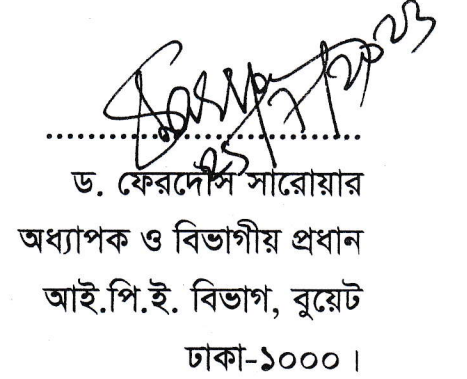 ড. ফেরদৌস সারোয়ার
অধ্যাপক ও বিভাগীয় প্রধান
আই.পি.ই. বিভাগ, বুয়েট
ঢাকা-১০০০।